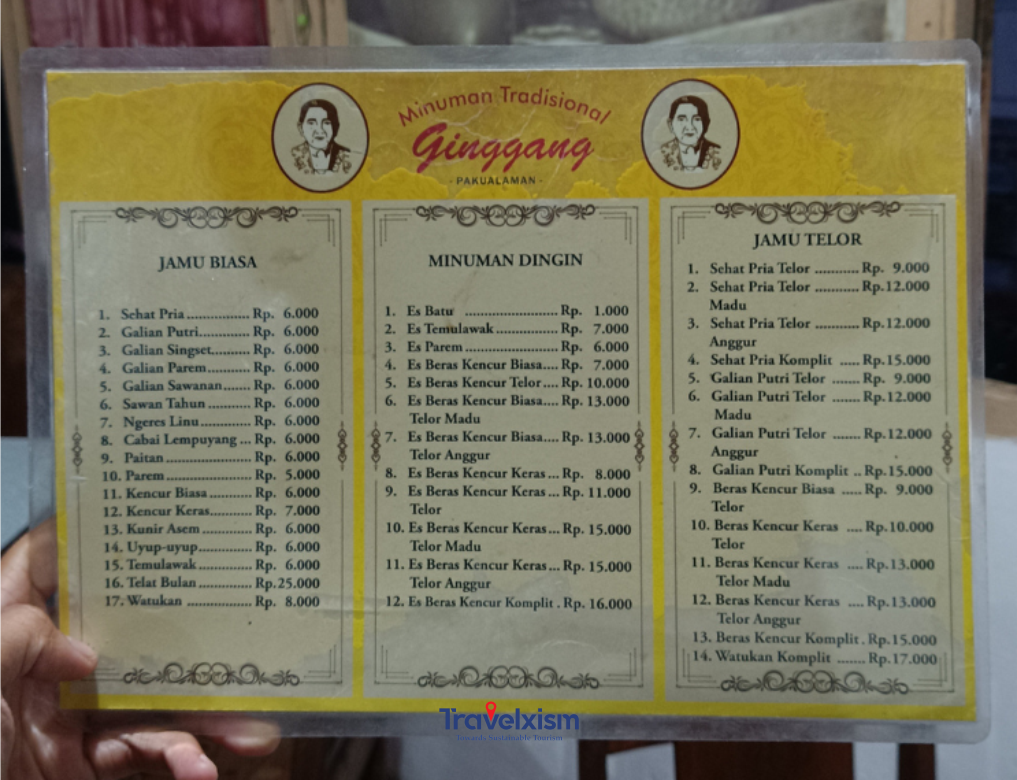 Minuman Tradisional
Ginggang
- PAKUALAMAN -
JAMU BIASA
1. Sehat Pria ................ Rp. 6.000
2. Galian Putri.............. Rp. 6.000
3. Galian Singset.......... Rp. 6.000
4. Galian Parem........... Rp. 6.000
5. Galian Sawanan....... Rp. 6.000
6. Sawan Tahun ........... Rp. 6.000
7. Ngeres Linu............. Rp. 6.000
8. Cabai Lempuyang ... Rp. 6.000
9. Paitan ..................... Rp. 6.000
10. Parem ..................... Rp. 5.000
11. Kencur Biasa........... Rp. 6.000
12. Kencur Keras........... Rp. 7.000
13. Kunir Asem ............. Rp. 6.000
14. Uyup-uyup.............. Rp. 6.000
15. Temulawak .............. Rp. 6.000
16. Telat Bulan .............. Rp.25.000
17. Watukan ................. Rp. 8.000
MINUMAN DINGIN
1. Es Batu ........................ Rp. 1.000
2. Es Temulawak ................ Rp. 7.000
3. Es Parem ........................ Rp. 6.000
4. Es Beras Kencur Biasa.... Rp. 7.000
5. Es Beras Kencur Telor.... Rp. 10.000
6. Es Beras Kencur Biasa.... Rp. 13.000
Telor Madu
7. Es Beras Kencur Biasa.... Rp. 13.000
Telor Anggur
8. Es Beras Kencur Keras ... Rp. 8.000
9. Es Beras Kencur Keras ... Rp. 11.000
Telor
10. Es Beras Kencur Keras... Rp. 15.000
Telor Madu
11. Es Beras Kencur Keras... Rp. 15.000
Telor Anggur
12. Es Beras Kencur Komplit . Rp. 16.000
JAMU TELOR
1. Sehat Pria Telor ........... Rp. 9.000
2. Sehat Pria Telor ........... Rp.12.000
Madu
3. Sehat Pria Telor ........... Rp.12.000
Anggur
4. Sehat Pria Komplit ..... Rp.15.000
5. Galian Putri Telor ....... Rp. 9.000
6. Galian Putri Telor ....... Rp.12.000
Madu
7. Galian Putri Telor ....... Rp.12.000
Anggur
8. Galian Putri Komplit .. Rp.15.000
9. Beras Kencur Biasa ..... Rp. 9.000
Telor
10. Beras Kencur Keras .... Rp.10.000
Telor
11. Beras Kencur Keras .... Rp.13.000
Telor Madu
12. Beras Kencur Keras .... Rp.13.000
Telor Anggur
13. Beras Kencur Komplit . Rp.15.000
14. Watukan Komplit ....... Rp.17.000
Travelxism
Towards Sustainable Tourism